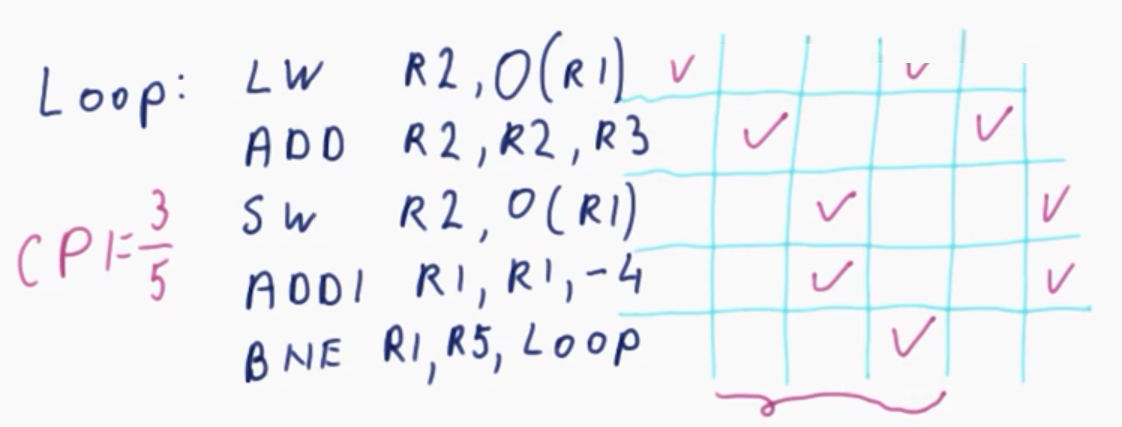 Loop: LW R2, 0(R1)
ADD R2, R2, R3
SW R2, 0(R1)
CPI = 3/5
ADDI R1, R1, -4
BNE R1, R5, Loop